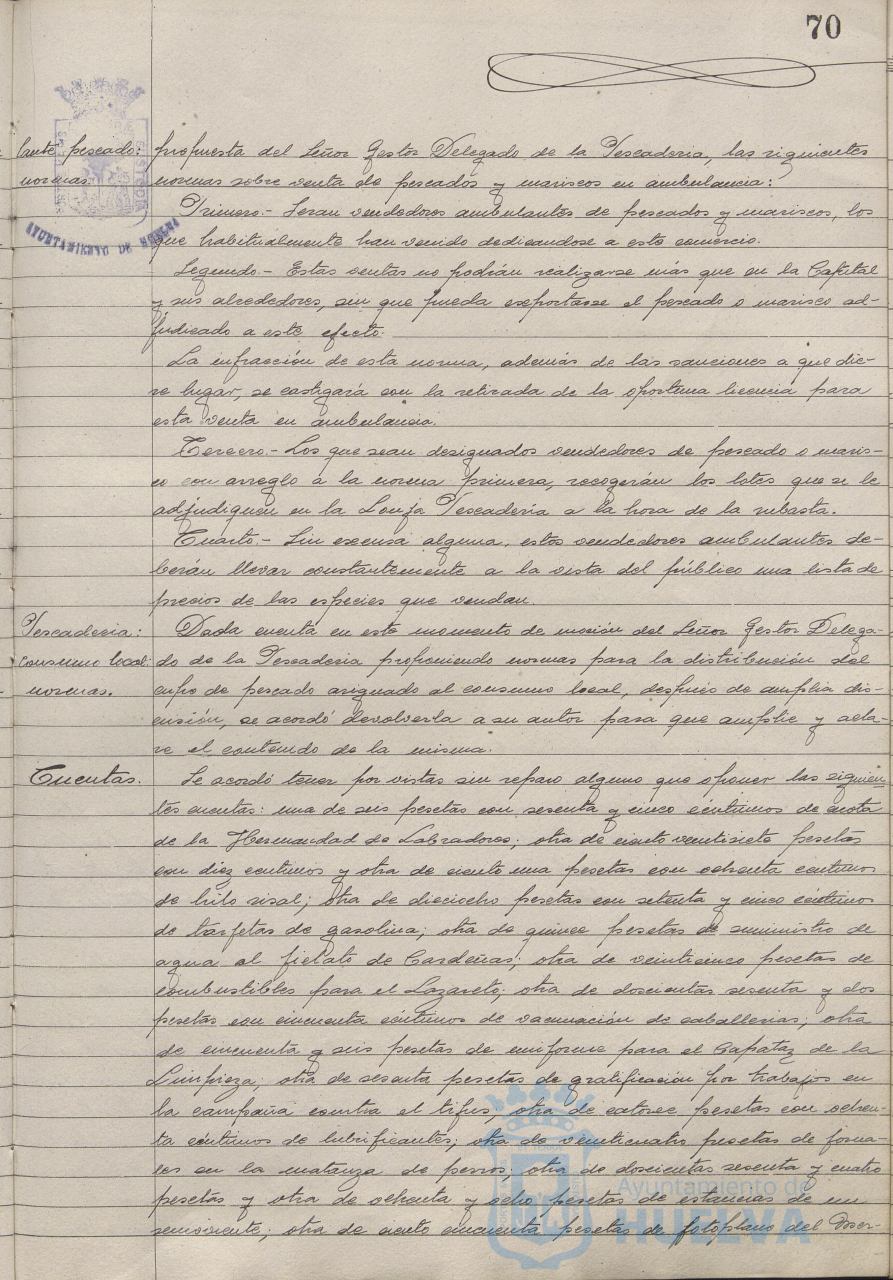 70
lante pescado:
normas.
propuesta del Señor Gestor Delegado de la Pescaderia, las siguientes
normas sobre venta de pescados y mariscos en ambulancia:
Primero.- Seran vendedores ambulantes de pescados y mariscos, los
que habitualmente han venido dedicandose a este comercio.
Segundo.- Estas ventas no podrán realizarse más que en la Capital
y sus alrededores, sin que pueda exportarse el pescado o marisco ad-
judicado a este efecto.
La infracción de esta norma, además de las sanciones a que die-
re lugar, se castigará con la retirada de la oportuna licencia para
esta venta en ambulancia.
Tercero.- Los que sean designados vendedores de pescado o maris-
co con arreglo a la norma primera, recogerán los lotes que se le
adjudiquen en la Lonja Pescaderia a la hora de la subasta.
Cuarto.- Sin excusa alguna, estos vendedores ambulantes de-
berán llevar constantemente a la vista del público una lista de
precios de las especies que vendan.
Pescaderia:
consumo local:
normas.
Dada cuenta en este momento de moción del Señor Gestor Delega-
do de la Pescaderia proponiendo normas para la distribución del
cupo de pescado asignado al consumo local, después de amplia dis-
cusión, se acordó devolverla a su autor para que amplie y acla-
re el contenido de la misma.
Cuentas.
Se acordó tener por vistas sin reparo alguno que oponer las siguien-
tes cuentas: una de seis pesetas con sesenta y cinco céntimos de cuota
de la Hermandad de Labradores; otra de ciento veintisiete pesetas
con diez centimos y otra de ciento una pesetas con ochenta centimos
de hilo sisal; otra de dieciocho pesetas con setenta y cinco céntimos
de tarjetas de gasolina; otra de quince pesetas de suministro de
agua al fielato de Cardeñas; otra de veinticinco pesetas de
combustibles para el Lazareto; otra de doscientas sesenta y dos
pesetas con cincuenta céntimos de vacunación de caballerias; otra
de cincuenta y seis pesetas de uniforme para el Capataz de la
Limpieza; otra de sesenta pesetas de gratificación por trabajos en
la campaña contra el tifus, otra de catorce pesetas con ochen-
ta céntimos de lubrificantes; otra de veinticuatro pesetas de jorna-
les en la matanza de perros; otra de doscientas sesenta y cuatro
pesetas y otra de ochenta y ocho pesetas de estancias de un
semoviente; otra de ciento cincuenta pesetas de fotoplano del Mer-
AYUNTAMIENTO DE HUELVA
Ayuntamiento de
HUELVA